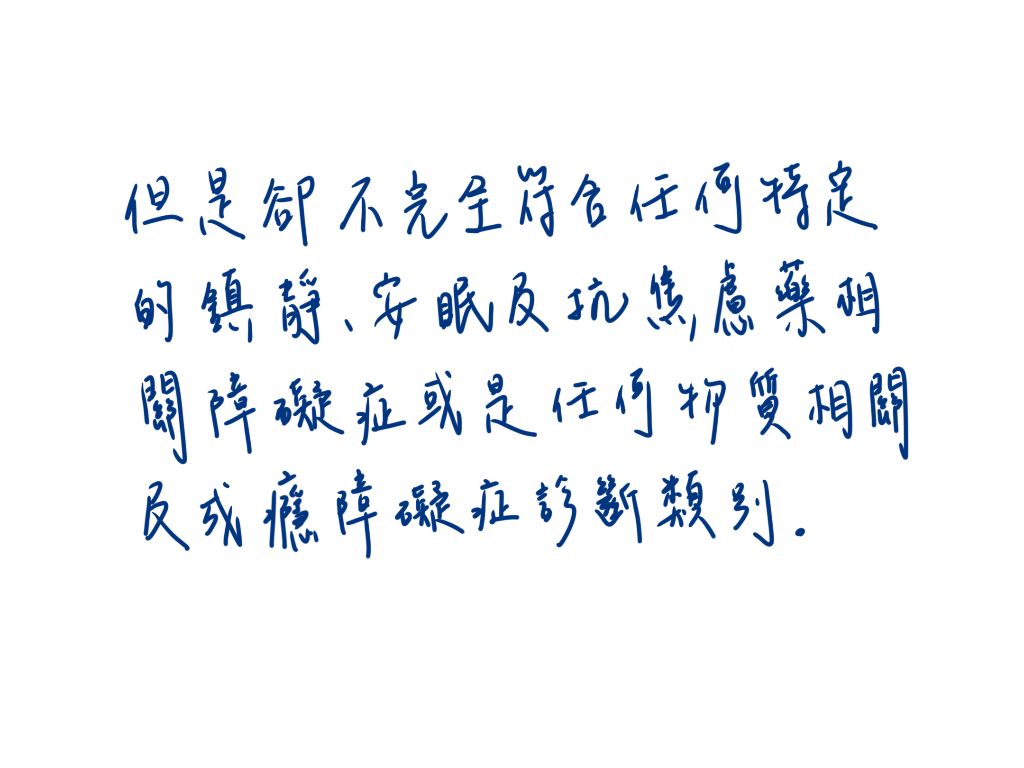 但是卻不完全符合任何特定
的鎮靜、安眠及抗焦慮藥相
關障礙症或是任何物質相關
及成癮障礙症診斷類別.